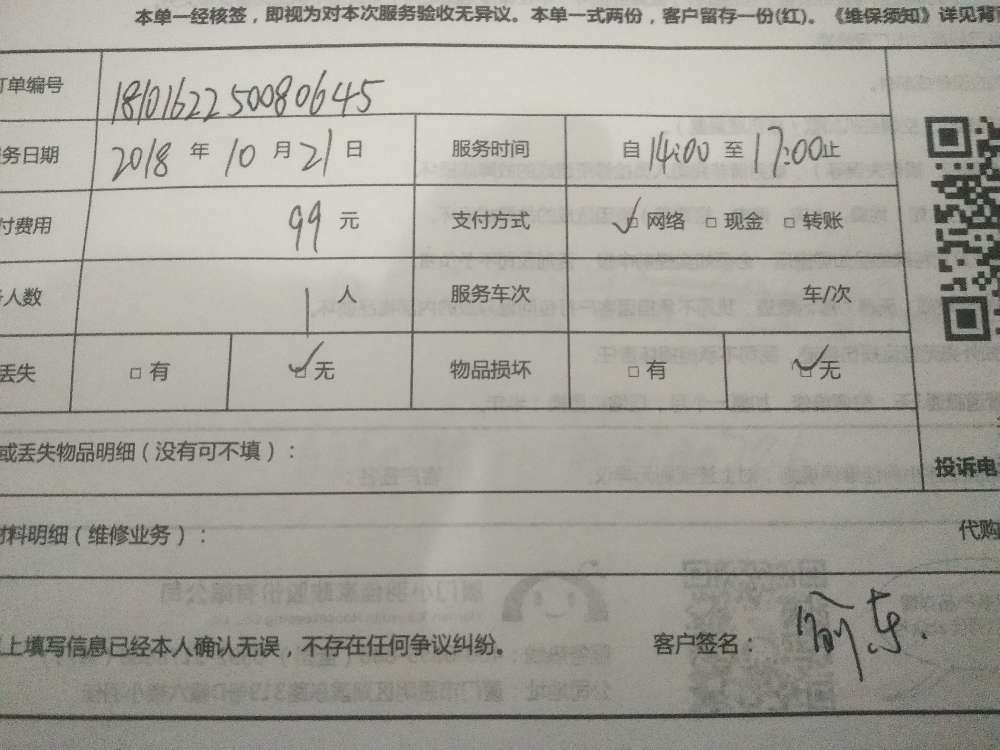 本单一经核签，即视为对本次服务验收无异议。本单一式两份，客户留存一份(红)。《维保须知》详见背
订单编号 1810162250080645
服务日期 2018 年 10 月 21 日 服务时间 自 14:00 至 17:00 止
付费用 99 元 支付方式 ☑ 网络 □ 现金 □ 转账
人数 1 人 服务车次 车/次
丢失 □ 有 ☑ 无 物品损坏 □ 有 ☑ 无
或丢失物品明细（没有可不填）：
投诉电
材料明细（维修业务）：
代购
以上填写信息已经本人确认无误，不存在任何争议纠纷。 客户签名：